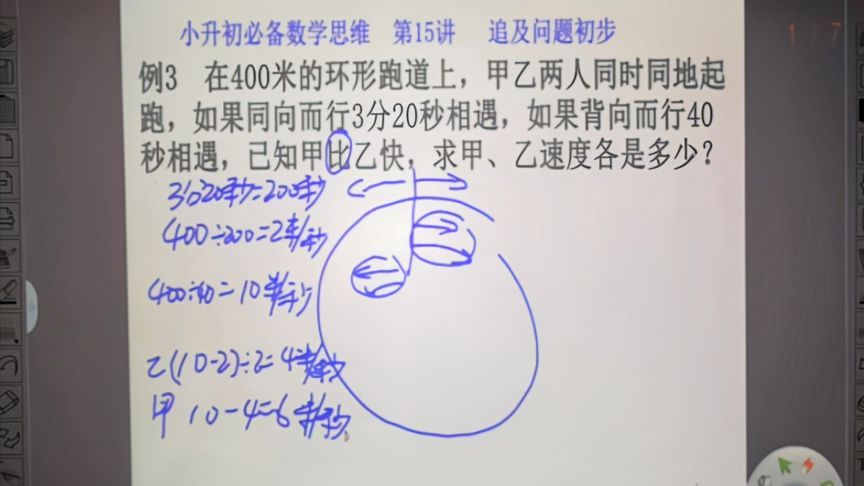 小升初必备数学思维 第15讲 追及问题初步
1/7
例3 在400米的环形跑道上，甲乙两人同时同地起
跑，如果同向而行3分20秒相遇，如果背向而行40
秒相遇，已知甲比乙快，求甲、乙速度各是多少？
3分20秒=200秒
400÷200=2米/秒
400÷40=10米/秒
乙(10-2)÷2=4米/秒
甲 10-4=6米/秒